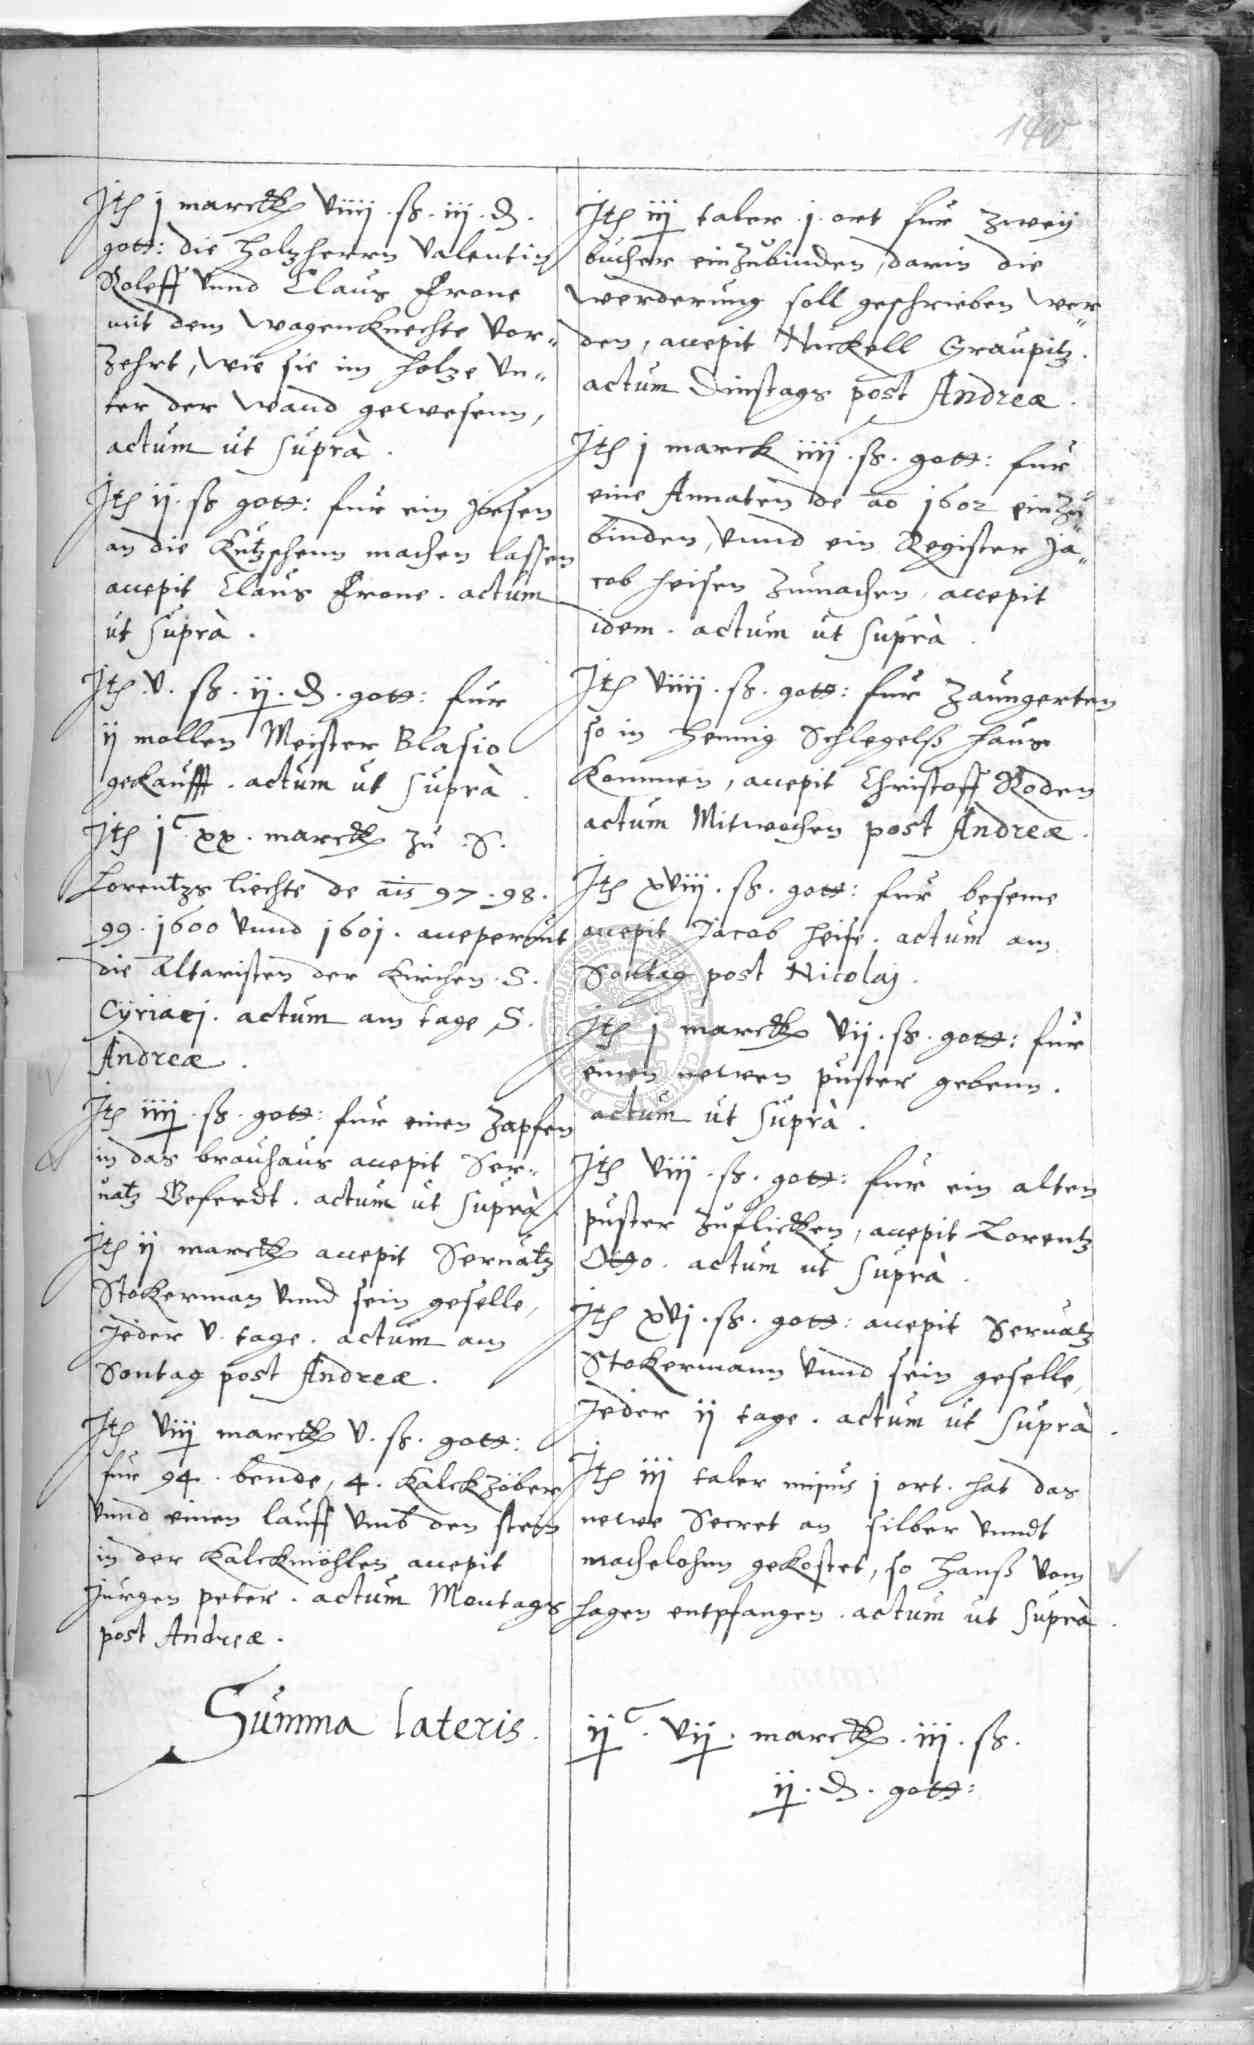 140
Jtem j marck viiij . ß . iij . d .
gott: die Holzherrn Valentin
Roleff vnnd Claus Frone
mit dem wagenknechte vor„
zehrt, wie sie im holze vn„
ter der Wand gewesenn,
actum ut suprà .
Jtem ij . ß gott: fur ein
an die Kutzschenn machen lassen
accepit Claus Frone . actum
ut suprà .
Jtem v . ß . ij . d . gott: fur
ij mollen Meister Blasio
gekaufft . actum ut suprà .
Jtem j C xx . marck zu S .
Lorentzs liechte de ais 97 . 98 .
99 . 1600 vnnd 1601 . acceperunt
die Altaristen der Kirchen . S .
Cÿriaci . actum am tage S .
Andreæ .
Jtem iiij . ß . gott: fur einen Zapfen
in das brauhaus accepit Ser„
uatz Geferdt . actum ut suprà
Jtem ij marck accepit Seruatz
Stokerman vnnd sein geselle,
Jeder v . tage . actum am
Sontag post Andreæ .
Jtem viij marck v . ß . gott:
fur 94 . bende, 4 . Kalckzöber
vnnd einen lauff vmb den stein
in der Kalckmöhlen accepit
Jurgen peter . actum Montags
post Andreæ .
Jtem iij taler . j . ort fur zweij
bucher einzubinden, darin die
werderung soll geschrieben wer„
den, accepit Nickell Graupitz .
actum Dinstags post Andreæ .
Jtem j marck iiij . ß . gott: fur
eine Annaten de ao 1602 einzu„
binden, vnnd ein Register Ja„
cob heisen zumachen, accepit
idem . actum ut suprà .
Jtem viiij . ß . gott: fur Zaungerten
so in Hennig Schlegelß haus
kommen, accepit Christoff Roden
actum Mitwochen post Andreæ .
Jtem xviij . ß . gott: fur beseme
accepit Jacob heise . actum am
Sontag post Nicolaj .
Jtem j marck vij . ß . gott: fur
einen newen puster gebenn .
actum ut suprà .
Jtem viij . ß . gott: fur ein alten
puster zuflicken, accepit Lorentz
Otto . actum ut suprà .
Jtem xvj . ß . gott: accepit Seruatz
Stokermann vnnd sein geselle,
Jeder ij tage . actum ut suprà .
Jtem iij taler minus j ort . hat das
newe Secret an silber vnndt
machelohnn gekostet, so Hanß vom
Hagen entpfangen . actum ut suprà .
Summa lateris .
ij C . vij . marck . iij . ß .
ij . d . gott: